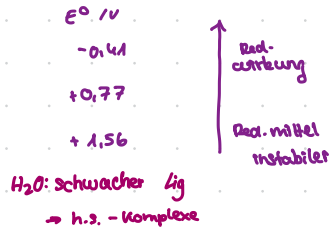 E⁰/V
-0,41
+0,77
+1,56
Red.-
wirkung
Red.mittel
instabiler
H₂O: schwacher Lig
→ h.s.-Komplexe